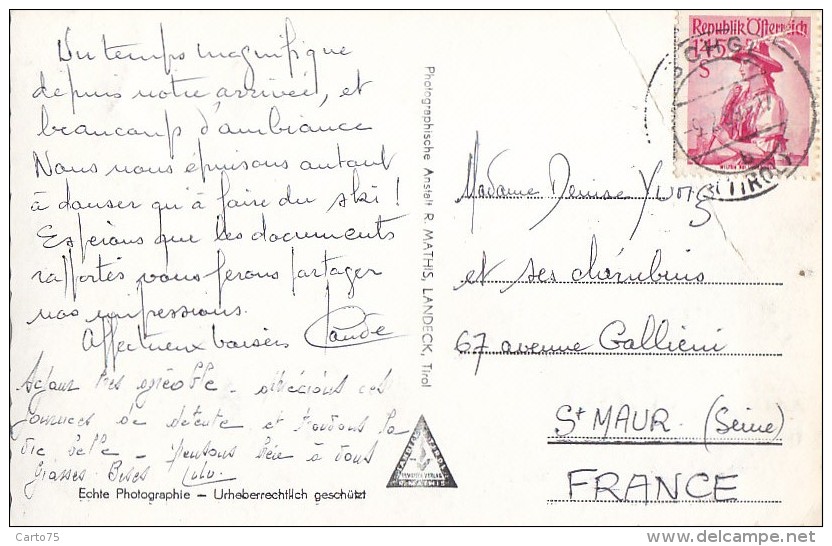 Un temps magnifique
depuis notre arrivée, et
beaucoup d'ambiance
Nous nous épuisons autant
à danser qu'à faire du ski !
Espérons que les documents
rapportés vous feront partager
nos impressions.
Affectueux baisers Claude
Séjour très agréable - apprécions ces
journées de détente et trouvons la
vie belle - pensons bien à vous
Grosses Bises Lulu
Echte Photographie – Urheberrechtlich geschützt
Photographische Anstalt R. MATHIS, LANDECK, Tirol
R. MATHIS
Republik Österreich
1.45
S
(TIROL)
Madame Denise
et ses chérubins
67 avenue Gallieni
St MAUR. (Seine)
FRANCE
www.delcampe.net
Carto75